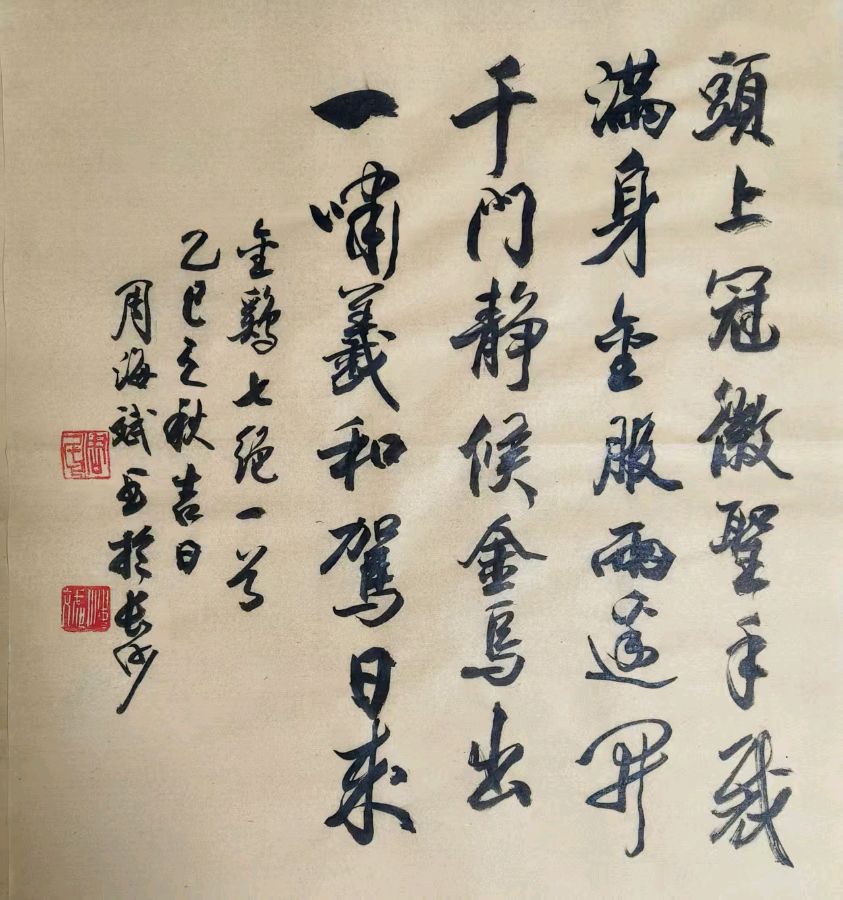 頭上冠徽聖手裁
滿身金服兩邊開
千門静候金烏出
一嘯羲和駕日来
金鷄七絕一首
乙巳之秋吉日
周海斌書於長沙